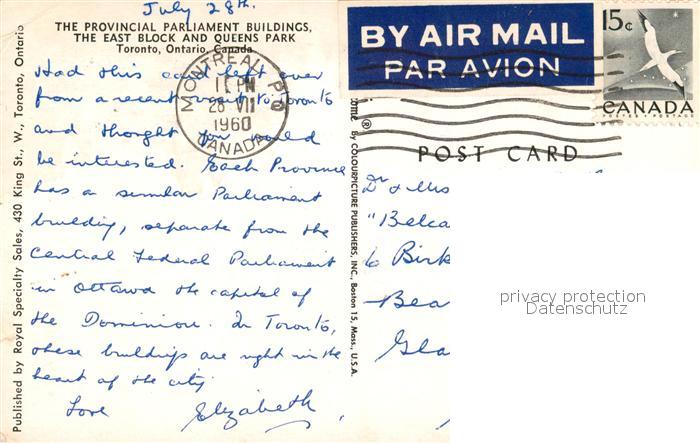 July 28th.
THE PROVINCIAL PARLIAMENT BUILDINGS,
THE EAST BLOCK AND QUEENS PARK
Toronto, Ontario, Canada
Had this card left over
from a recent visit to Toronto
and thought you would
be interested. Each Province
has a similar Parliament
building, separate from the
Central Federal Parliament
in Ottawa the capital of
the Dominion. In Toronto,
these buildings are right in the
heart of the city
Love Elizabeth
Published by Royal Specialty Sales, 430 King St., W., Toronto, Ontario
MONTREAL P.Q
PM
28 VII
1960
CANADA
BY AIR MAIL
PAR AVION
15c
CANADA
POSTES POSTAGE
POST CARD
® BY COLOURPICTURE PUBLISHERS, INC., Boston 15, Mass., U.S.A.
Dr & Mrs
"Belca
6 Birk
Bea
Gla
privacy protection
Datenschutz